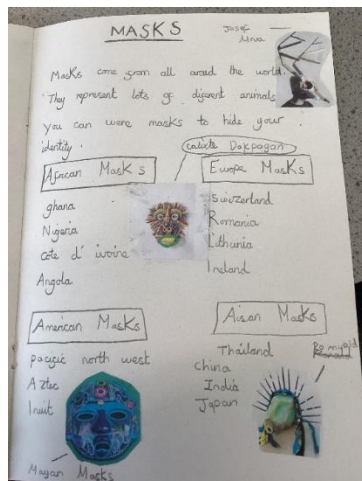 MASKS
Masks come from all around the world.
They represent lots of diferent animals
you can were masks to hide your
identity.
calixte Dakpogan
African Masks
ghana
Nigeria
cote d' ivoire
Angola
Europe Masks
Swizerland
Romania
Lithunia
Ireland
American Masks
pacific north west
Aztec
Inuit
Mayan Masks
Aisan Masks
Thailand
China
India
Japan